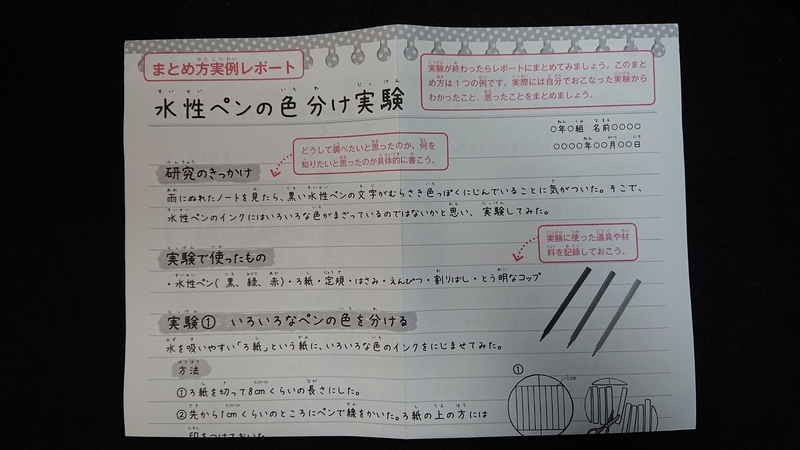 まとめ方実例レポート
実験が終わったらレポートにまとめてみましょう。このまと
め方は1つの例です。実際には自分でおこなった実験から
わかったこと、思ったことをまとめましょう。
水性ペンの色分け実験
○年○組 名前○○○○
○○○○年○○月○○日
どうして調べたいと思ったのか、何を
知りたいと思ったのか具体的に書こう。
研究のきっかけ
雨にぬれたノートを見たら、黒い水性ペンの文字がむらさき色っぽくにじんでいることに気がついた。そこで、
水性ペンのインクにはいろいろな色がまざっているのではないかと思い、実験してみた。
実験に使った道具や材
料を記録しておこう。
実験で使ったもの
・水性ペン(黒、緑、赤)・ろ紙・定規・はさみ・えんぴつ・割りばし・とう明なコップ
実験① いろいろなペンの色を分ける
水を吸いやすい「ろ紙」という紙に、いろいろな色のインクをにじませてみた。
方法
①ろ紙を切って8cmくらいの長さにした。
②先から1cmくらいのところにペンで線をかいた。ろ紙の上の方には
印をつけておいた
①
1cm